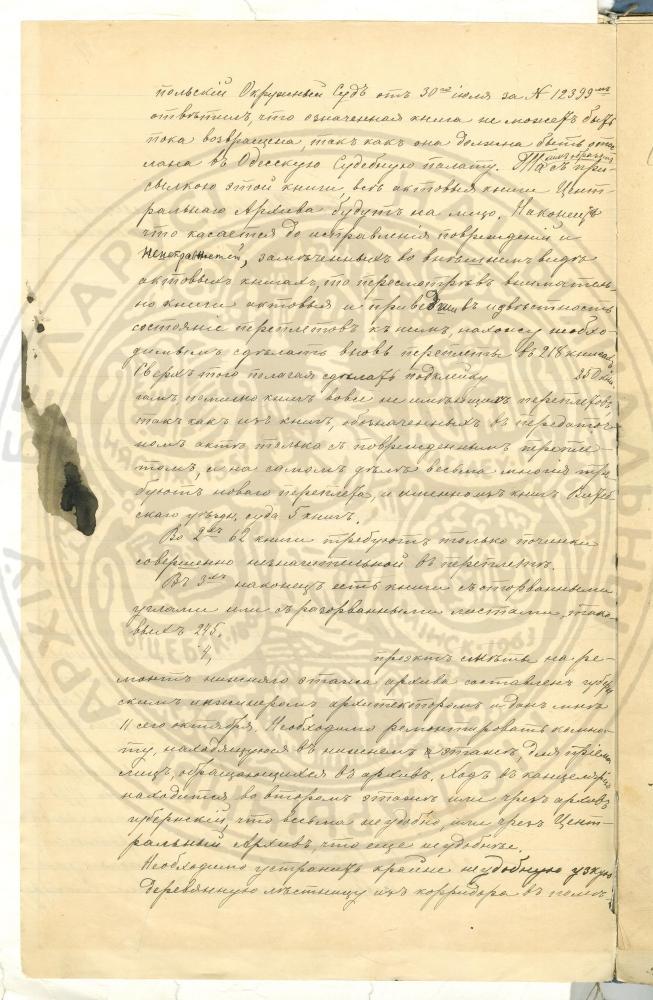 польскій Окружный Судъ отъ 30го іюля за № 12399мъ
отвѣтилъ, что означенная книга не можетъ быть
пока возвращена, такъ какъ она должна быть отос
лана въ Одесскую Судебную палату. съ при
сылкою этой книги, всѣ актовыя книги Цент-
ральнаго Архива будутъ на лицо. Наконецъ
что касается до исправленія поврежденій и
неисправностей, замѣченныхъ во внѣшнемъ видѣ
актовыхъ книгахъ, то пересмотрѣвъ вниматель-
но книги актовыя и приведши въ извѣстность
состояніе переплетовъ къ нимъ, нахожу необхо-
димымъ сдѣлать вновь переплеты въ 218 книгахъ
Сверхъ того полагая сдѣлать подклейку 250 кни
гамъ помимо книгъ вовсе не имѣющихъ переплетовъ,
такъ какъ изъ книгъ, обозначенныхъ въ передаточ-
номъ актѣ только съ поврежденнымъ перепле-
томъ, на самомъ дѣлѣ весьма многія тре
буютъ новаго переплета, и именно изъ книгъ Витеб
скаго уѣздн. суда 5 книгъ.
Во 2хъ 62 книги требуютъ только починки
совершенно незначительной въ переплетѣ.
Въ 3хъ наконецъ есть книги съ оторванными
углами или съ разорванными листами, тако-
выхъ 245.
4, проэктъ смѣты на ре-
монтъ нижняго этажа архива составленъ губерн
скимъ инженеромъ архитекторомъ и данъ мнѣ
11 сего октября. Необходимо ремонтировать комна-
ту, находящуюся въ нижнемъ этажѣ, для пріема
лицъ, обращающихся въ архивъ. Ходъ въ канцелярію
находится во второмъ этажѣ или чрезъ архивъ
губернскій, что весьма неудобно, или чрезъ Цент-
ральный Архивъ, что еще неудобнѣе.
Необходимо устранить крайне неудобную узкую
деревянную лѣстницу изъ корридора въ помѣ-
АРХІВ
ВИЦЕБСК